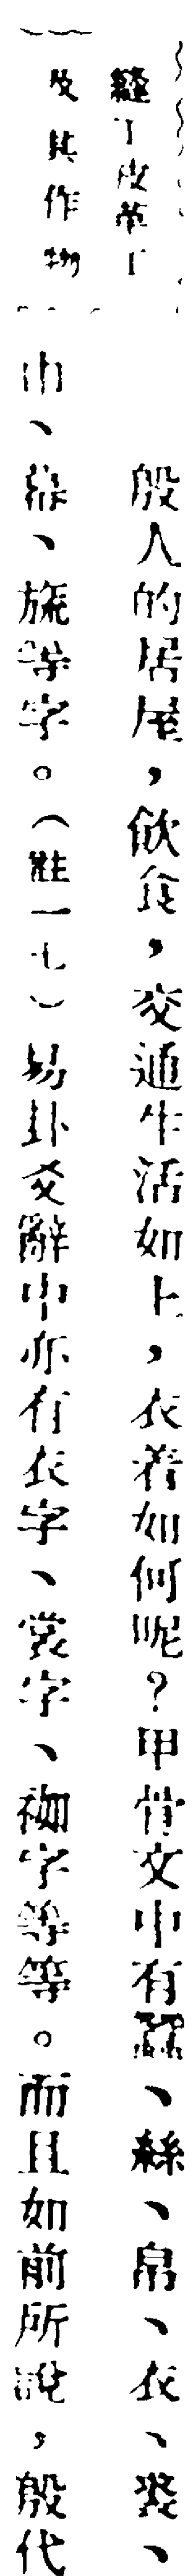 縫工皮革工
及其作物
殷人的居屋，飲食，交通生活如上，衣着如何呢？甲骨文中有蠶、絲、帛、衣、裘、
巾、幕、旒等字。（註一七）易卦爻辭中亦有衣字、裳字、袽字等等。而且如前所說，殷代